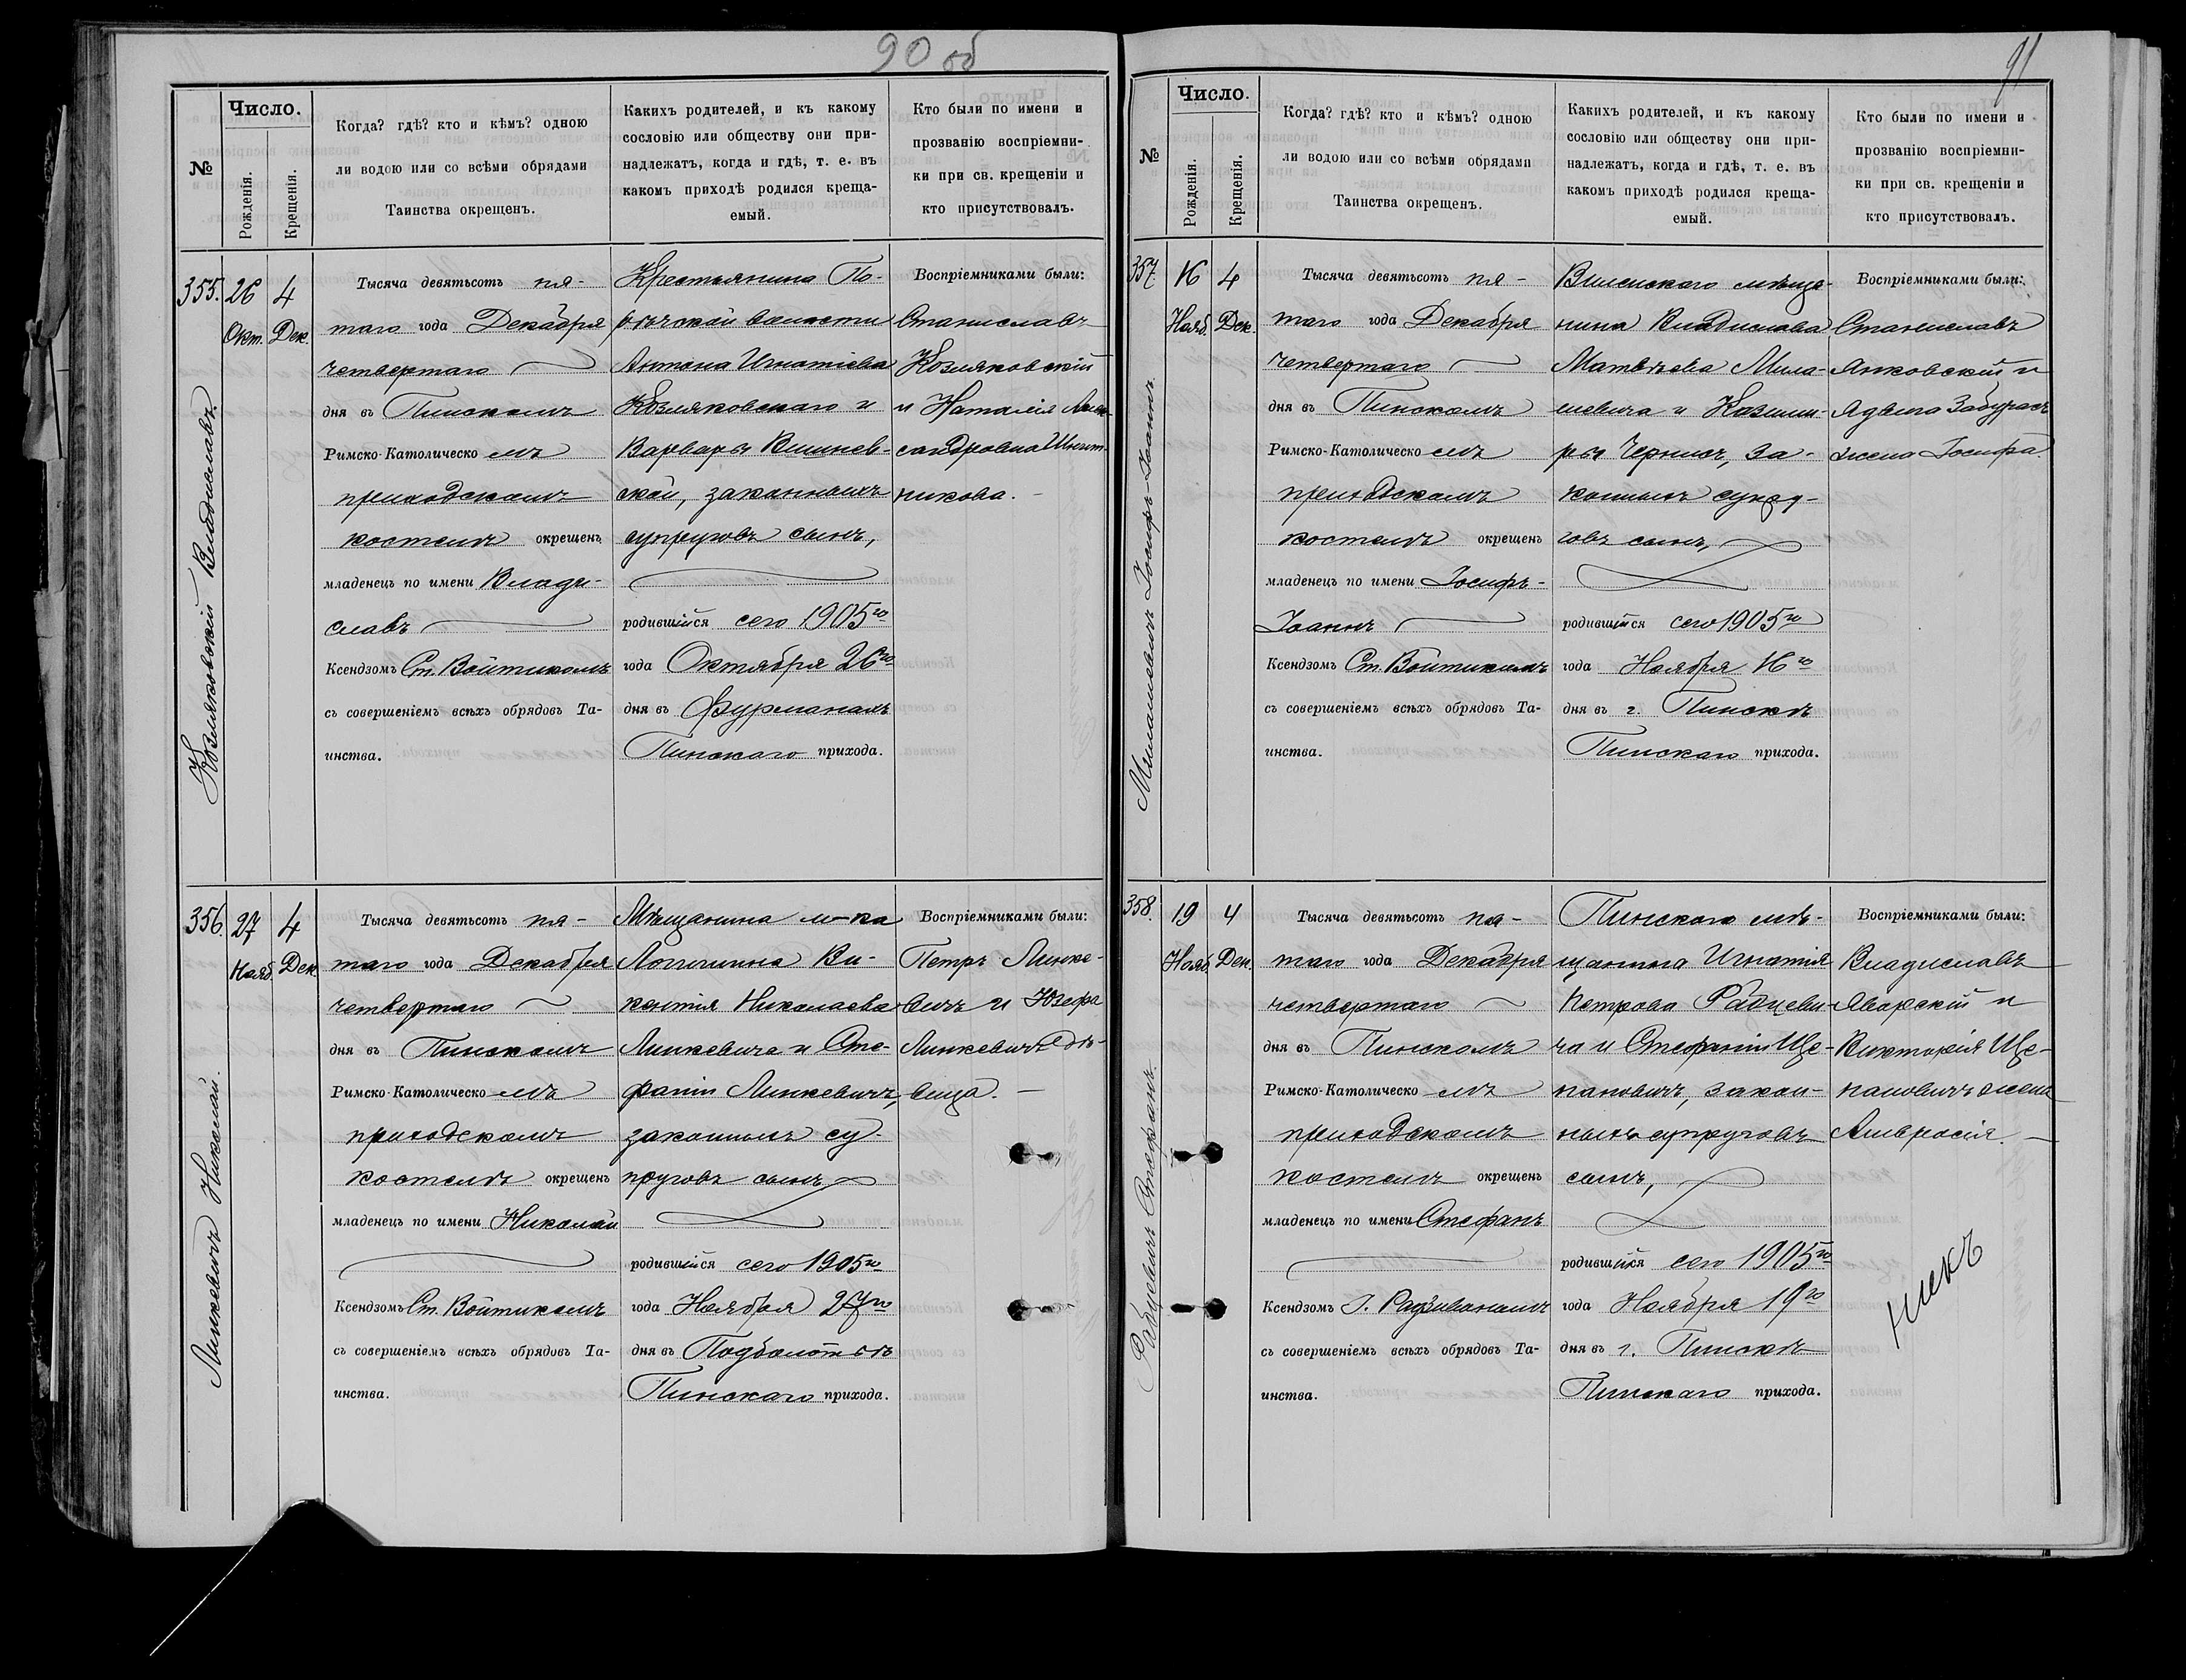 90 об
№
Число.
Рожденія.
Крещенія.
Когда? гдѣ? кто и кѣмъ? одною
ли водою или со всѣми обрядами
Таинства окрещенъ.
Какихъ родителей, и къ какому
сословію или обществу они при-
надлежатъ, когда и гдѣ, т. е. въ
какомъ приходѣ родился креща-
емый.
Кто были по имени и
прозванію воспріемни-
ки при св. крещеніи и
кто присутствовалъ.
355.
26
Окт.
4
Дек.
Козляковскій Владиславъ.
Тысяча девятьсотъ пя-
таго года Декабря
четвертаго
дня въ Пинскомъ
Римско-Католическомъ
приходскомъ
костелѣ окрещенъ
младенецъ по имени Влади-
славъ
Ксендзомъ Ст. Войтикомъ
съ совершеніемъ всѣхъ обрядовъ Та-
инства.
Крестьянина По-
рѣчской волости
Антона Игнатіева
Козляковскаго и
Варвары Вишнев-
ской, законныхъ
супруговъ сынъ,
родившійся сего 1905го
года Октября 26го
дня въ Фурманахъ
Пинскаго прихода.
Воспріемниками были:
Станиславъ
Козляковскій
и Наталія Алек-
сандровна
никова.
356.
27
Нояб.
4
Дек.
Линкевичъ Николай.
Тысяча девятьсотъ пя-
таго года Декабря
четвертаго
дня въ Пинскомъ
Римско-Католическомъ
приходскомъ
костелѣ окрещенъ
младенецъ по имени Николай
Ксендзомъ Ст. Войтикомъ
съ совершеніемъ всѣхъ обрядовъ Та-
инства.
Мѣщанина м-ка
Логишина Ви-
кентія Николаева
Линкевича и Сте-
фаніи Линкевичъ,
законныхъ су-
пруговъ сынъ,
родившійся сего 1905го
года Ноября 27го
дня въ Подболотьѣ
Пинскаго прихода.
Воспріемниками были:
Петръ Линке-
вичъ и Юзефа
Линкевичъ дѣ-
вица.
91
№
Число.
Рожденія.
Крещенія.
Когда? гдѣ? кто и кѣмъ? одною
ли водою или со всѣми обрядами
Таинства окрещенъ.
Какихъ родителей, и къ какому
сословію или обществу они при-
надлежатъ, когда и гдѣ, т. е. въ
какомъ приходѣ родился креща-
емый.
Кто были по имени и
прозванію воспріемни-
ки при св. крещеніи и
кто присутствовалъ.
357.
16
Нояб.
4
Дек.
Милашевичъ Іосифъ-Іоаннъ
Тысяча девятьсотъ пя-
таго года Декабря
четвертаго
дня въ Пинскомъ
Римско-Католическомъ
приходскомъ
костелѣ окрещенъ
младенецъ по имени Іосифъ-
Іоаннъ
Ксендзомъ Ст. Войтикомъ
съ совершеніемъ всѣхъ обрядовъ Та-
инства.
Виленскаго мѣща-
нина Владислава
Матвѣева Мила-
шевича и Казими-
ры Чернисъ, за-
конныхъ супру-
говъ сынъ,
родившійся сего 1905го
года Ноября 16го
дня въ г. Пинскѣ
Пинскаго прихода.
Воспріемниками были:
Станиславъ
Янковскій и
Ядвига
жена Іосифа.
358.
19
Нояб.
4
Дек.
Рабцевичъ Стефанъ.
Тысяча девятьсотъ пя-
таго года Декабря
четвертаго
дня въ Пинскомъ
Римско-Католическомъ
приходскомъ
костелѣ окрещенъ
младенецъ по имени Стефанъ
Ксендзомъ І. Радзиваномъ
съ совершеніемъ всѣхъ обрядовъ Та-
инства.
Пинскаго мѣ-
щанина Игнатія
Петрова Рабцеви-
ча и Стефаніи Ще-
пановичъ, закон-
ныхъ супруговъ
сынъ,
родившійся сего 1905го
года Ноября 19го
дня въ г. Пинскѣ
Пинскаго прихода.
Воспріемниками были:
Владиславъ
Яворскій и
Викторія Ще-
пановичъ жена
Амвросія.